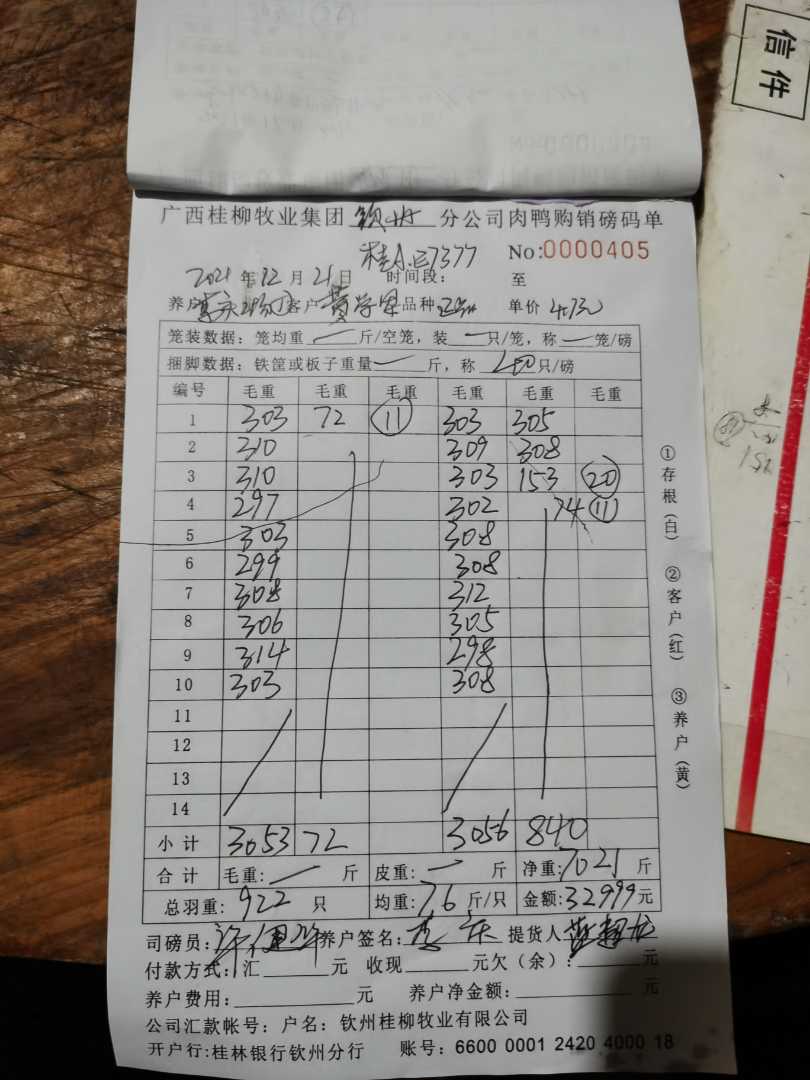 信件
广西桂柳牧业集团 钦州 分公司肉鸭购销磅码单
桂A 7377 No:0000405
2021 年 12 月 21 日 时间段： 至
养户 客户 品种 单价 4.7元
笼装数据：笼均重 一 斤/空笼，装 一 只/笼，称 一 笼/磅
捆脚数据：铁筐或板子重量 一 斤，称 40 只/磅
编号 毛重 毛重 毛重 毛重 毛重 毛重
1 303 72 11 303 305
2 310 309 308
3 310 303 153 20
4 297 302 74 11
5 303 308
6 299 308
7 308 312
8 306 305
9 314 298
10 303 308
11
12
13
14
小计 3053 72 3056 840
合计 毛重：一 斤 皮重：一 斤 净重：7021 斤
总羽重：922 只 均重：7.6 斤/只 金额：32999 元
司磅员： 养户签名： 提货人
付款方式：汇 元 收现 元欠（余）： 元
养户费用： 元 养户净金额： 元
公司汇款帐号：户名：钦州桂柳牧业有限公司
开户行:桂林银行钦州分行 账号：6600 0001 2420 4000 18
①存根（白） ②客户（红） ③养户（黄）